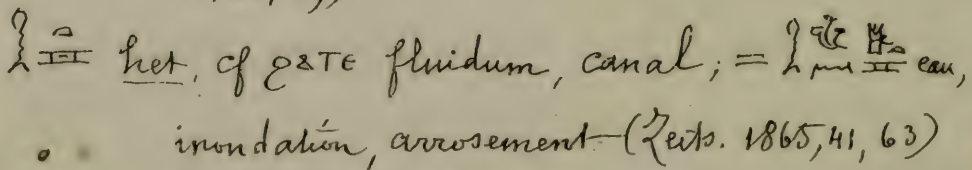 het, cf ϩⲁⲧⲉ fluidum, canal; = eau,
inondation, arrosement (Zeits. 1865, 41, 63)